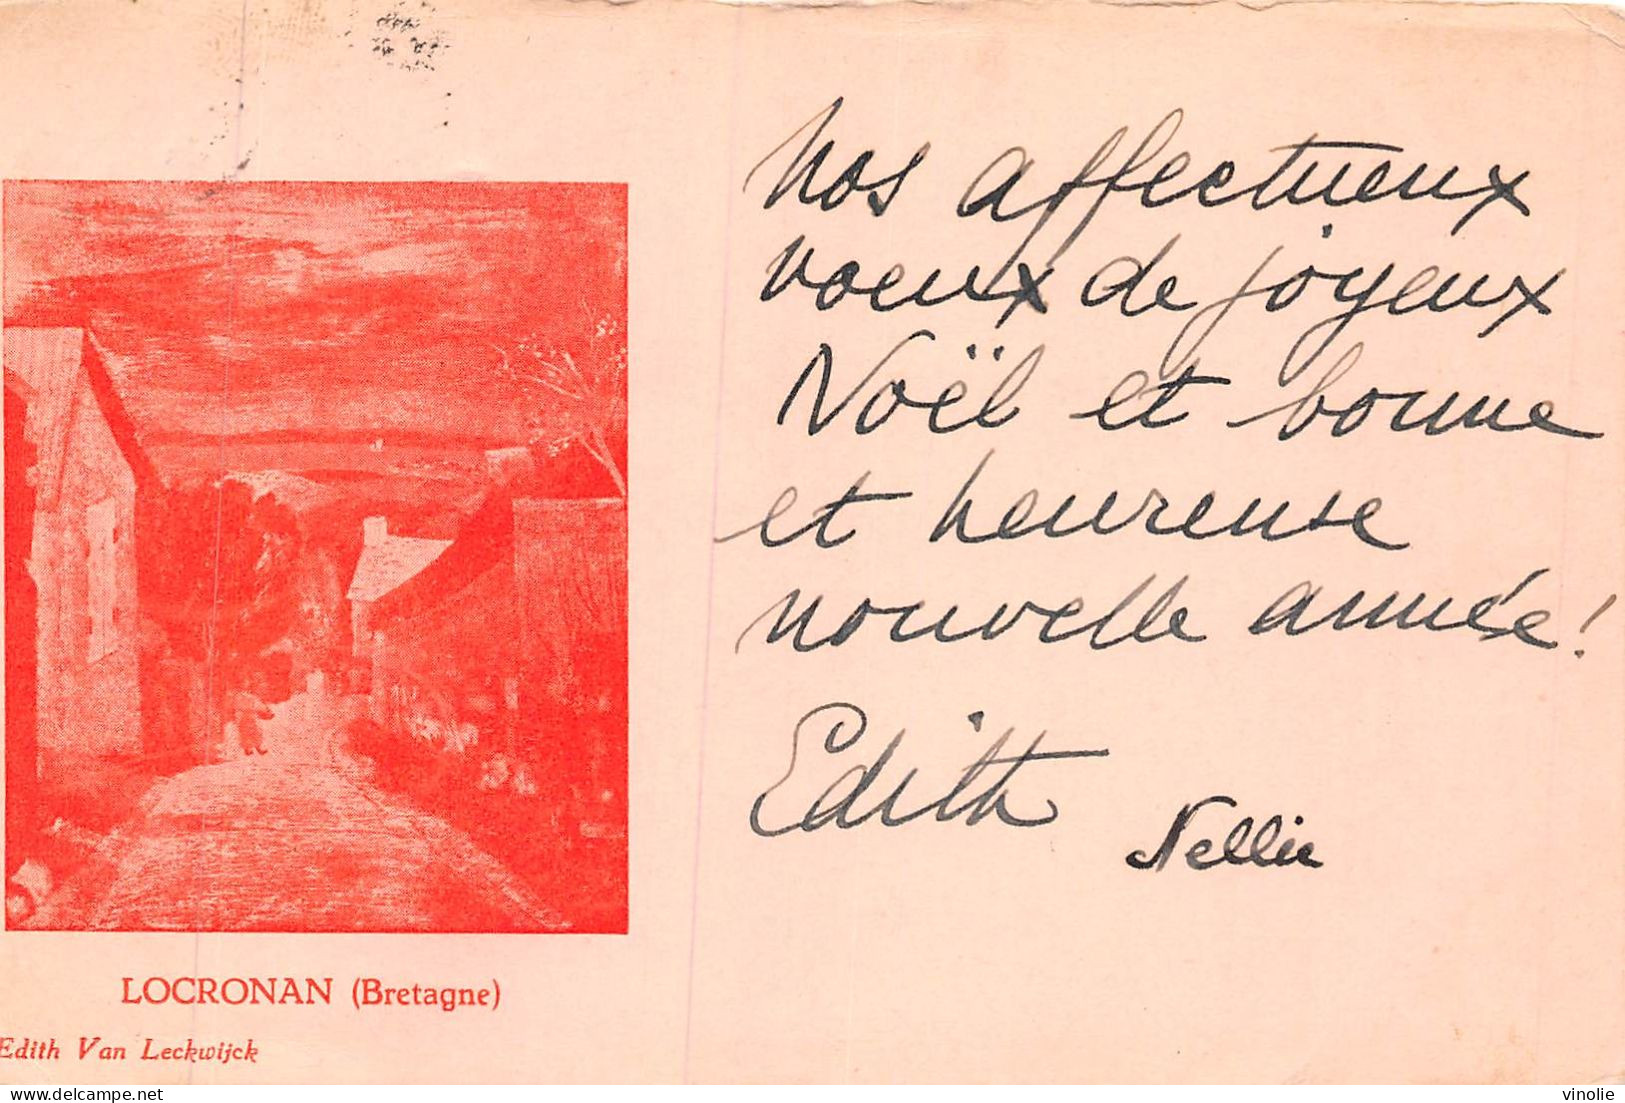 Nos affectueux
voeux de joyeux
Noël et bonne
et heureuse
nouvelle année!
Edith
Nellie
LOCRONAN (Bretagne)
Edith Van Leckwijck
delcampe.net
vinolie